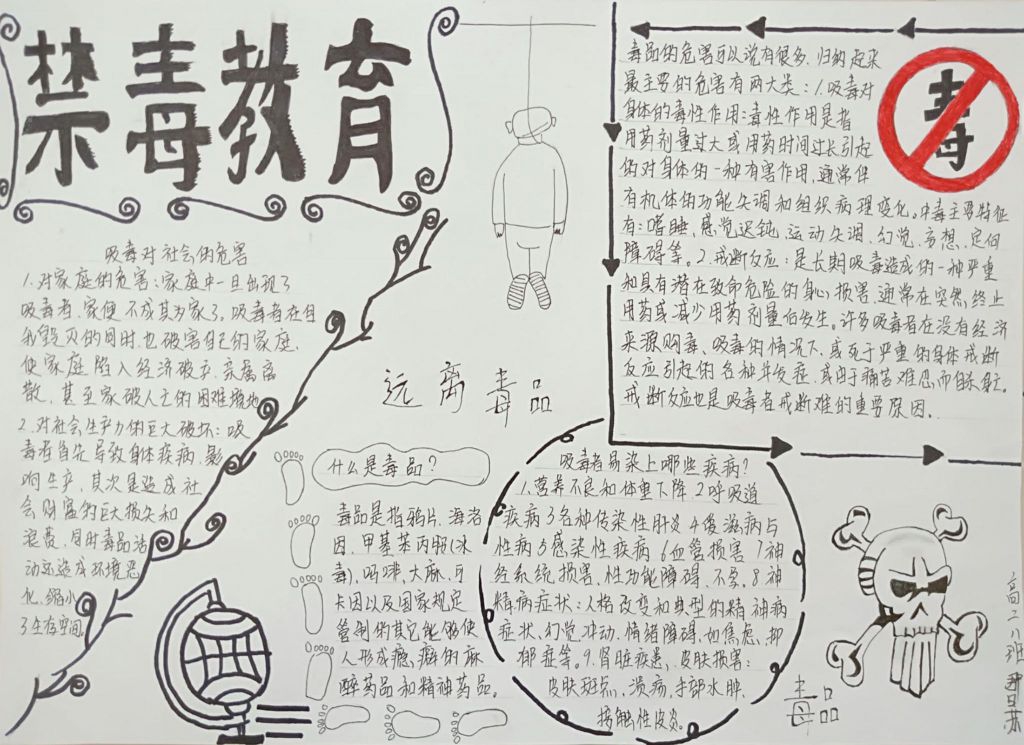 禁毒教育
吸毒对社会的危害
1.对家庭的危害:家庭中一旦出现了
吸毒者,家便不成其为家了。吸毒者在自
我毁灭的同时,也破害自己的家庭,
使家庭陷入经济破产、亲属离
散、甚至家破人亡的困难境地
2.对社会生产力的巨大破坏:吸
毒者首先导致身体疾病,影
响生产,其次是造成社
会财富的巨大损失和
浪费,同时毒品活
动还造成环境恶
化,缩小
了生存空间。
远离毒品
什么是毒品?
毒品是指鸦片、海洛
因、甲基苯丙胺(冰
毒)、吗啡、大麻、可
卡因以及国家规定
管制的其它能够使
人形成瘾癖的麻
醉药品和精神药品。
毒品的危害可以说有很多,归纳起来
最主要的危害有两大类:1.吸毒对
身体的毒性作用:毒性作用是指
用药剂量过大或用药时间过长引起
的对身体的一种有害作用,通常伴
有机体的功能失调和组织病理变化。中毒主要特征
有:嗜睡、感觉迟钝、运动失调、幻觉、妄想、定向
障碍等。2.戒断反应:是长期吸毒造成的一种严重
和具有潜在致命危险的身心损害,通常在突然终止
用药或减少用药剂量后发生。许多吸毒者在没有经济
来源购毒、吸毒的情况下,或死于严重的身体戒断
反应引起的各种并发症,或由于痛苦难忍而自杀身亡。
戒断反应也是吸毒者戒断难的重要原因.
毒
吸毒者易染上哪些疾病?
1.营养不良和体重下降 2呼吸道
疾病 3各种传染性肝炎 4艾滋病与
性病 5感染性疾病 6血管损害 7神
经系统损害、性功能障碍、不孕,8神
精病症状:人格改变和典型的精神病
症状、幻觉、冲动、情绪障碍,如焦虑、抑
郁症等。9.肾脏疾患、皮肤损害:
皮肤斑点、溃疡、手部水肿、
接触性皮炎。
毒品
高二八班